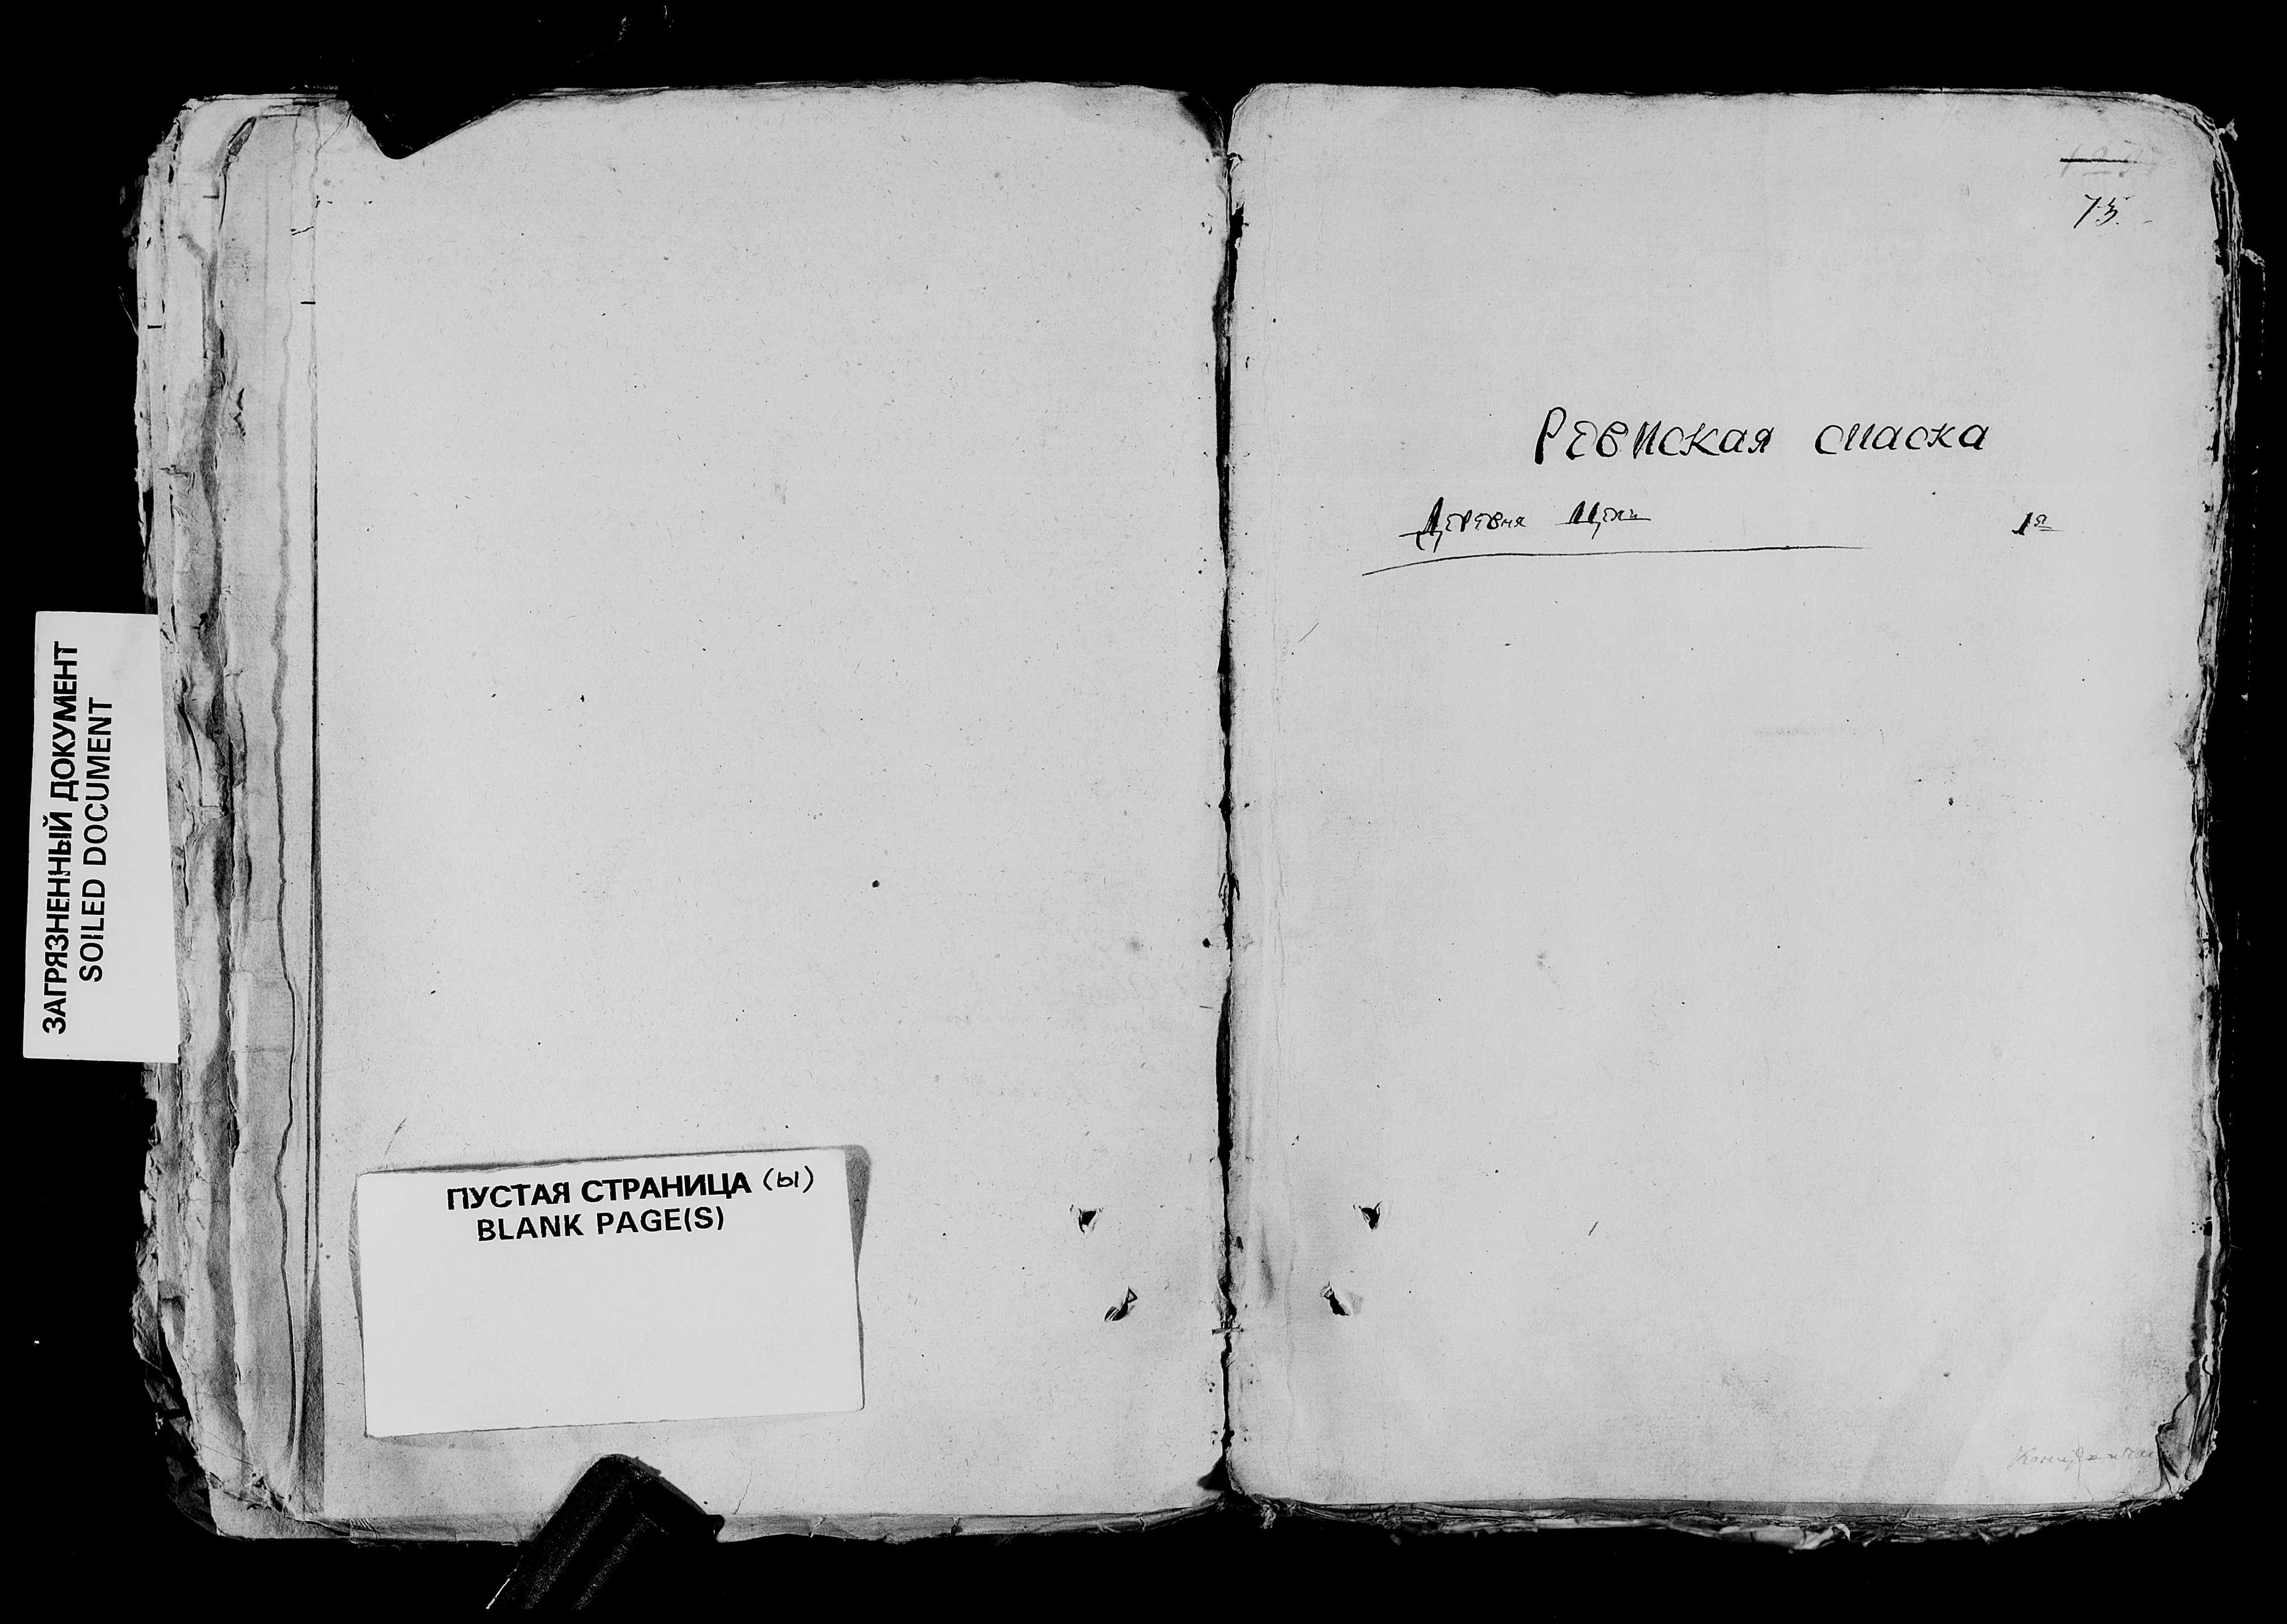 ЗАГРЯЗНЕННЫЙ ДОКУМЕНТ
SOILED DOCUMENT
ПУСТАЯ СТРАНИЦА (ы)
BLANK PAGE(S)
75.
Ревиская спаска
Деревня
1я